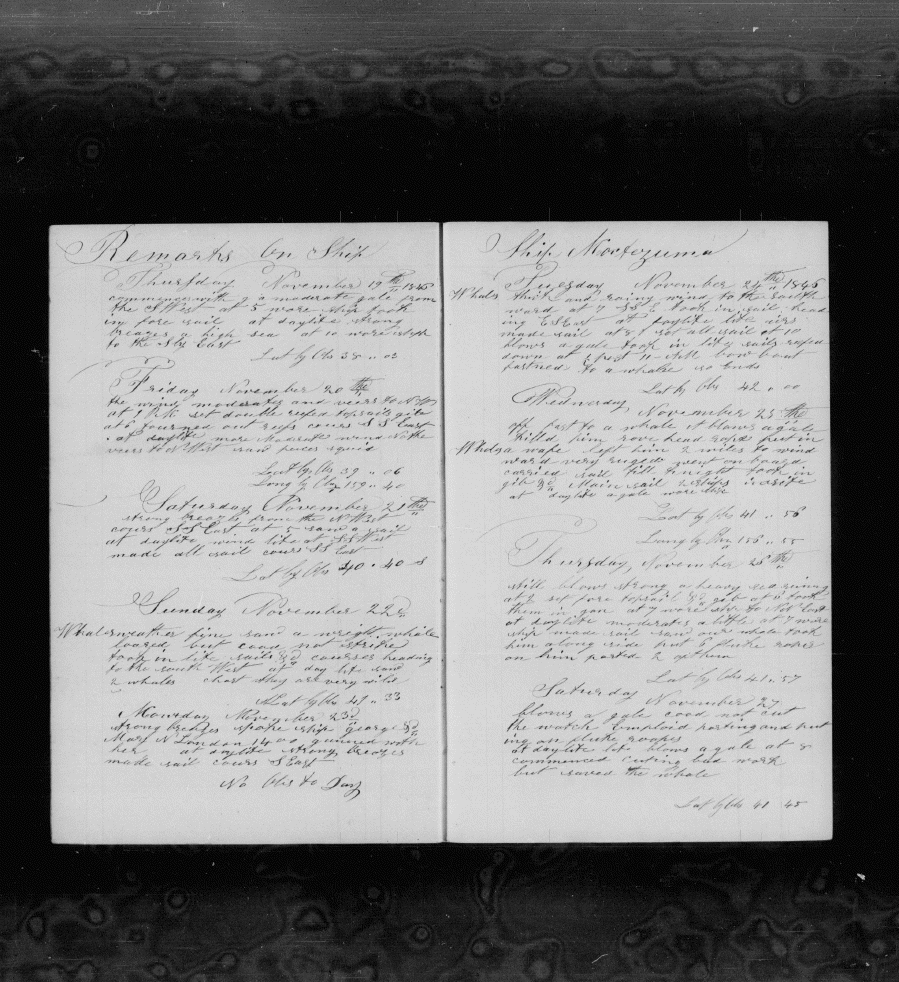 Remarks On Ship
Thursday November 19th 1846
commences with a moderate gale from
the S West at 5 wore ship took
in fore sail at daylite strong
breases a high sea at 10 wore ship
to the S by East
Lat by Obs 38 " 03
Friday November 20 th
the wind moderates and veers to N W
at 1 P.M. set double refed topsails gib
at 6 turned out refs cours S S East
at daylite more moderate wind
veers to N West saw peices squid
Lat by Obs 39 " 06
Long by 159 " 40
Saturday November 21 th
strong breazes from the N West
cours S S East at 5 saw a sail
at daylite wind lite at S S West
made all sail cours S S East
Lat by Obs 40 " 40 S
Sunday November 22d
Whales weather fine saw a wright whale
loared but cood not strike
took in lite sails &c courses heading
to the south West at day lite saw
2 whales chast they are very wild
Lat by Obs 41 " 33
Monday November 23d
strong breazes spoke ship george &
Mary N London 1400 gamed with
her at daylite strong breazes
made sail cours S East
No Obs to Day
Ship Moctezuma
Tuesday November 24 th 1846
Whales thick and rainy wind to the south
ward at 7 took in sail head
ing E S East at daylite
made sail at 8 all sail at 10
blows a gale took in lite sails refed
down at 11 AM bow boat
fastned to a whale so Ends
Lat by Obs 42 " 00
Wednesday
November 25 th
fast to a whale it blows a gale
kill'd him rove head rope put in
Whale a wafe left him 2 miles to wind
ward very ruged went on board
carried sail till night took in
gib &c Main sail 2 ships in site
at daylite a gale wore ship
Lat by Obs 41 " 56
Long by 158 " 55
Thursday, November 26 th
still blows strong a heavy sea runing
at 2 set fore topsail & gib at 6 took
them in gan at 7 wore ship to NW
at daylite moderates a little at 7 wore
ship made sail saw our whale took
him along side put 6 fluke ropes
on him parted 2 of them
Lat by Obs 41 " 57
Saturday
November 27
blows a gale cood not cut
the watch Employd parting and put
ing on fluke roapes
at daylite blows a gale at 8
commenced cuting bad work
but saved the whale
Lat by Obs 41 45